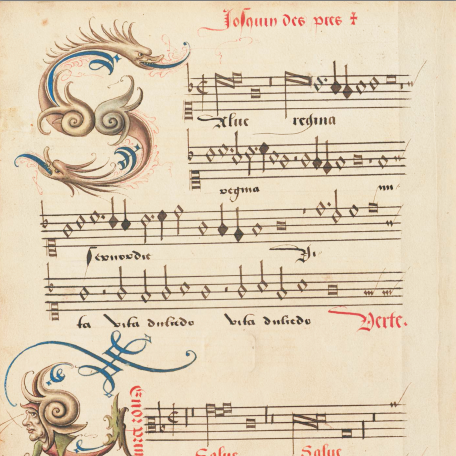 Josquin des pres
Salue regina
regina
misericordie Vi
ta vita dulcedo vita dulcedo Verte.
Salue Salue